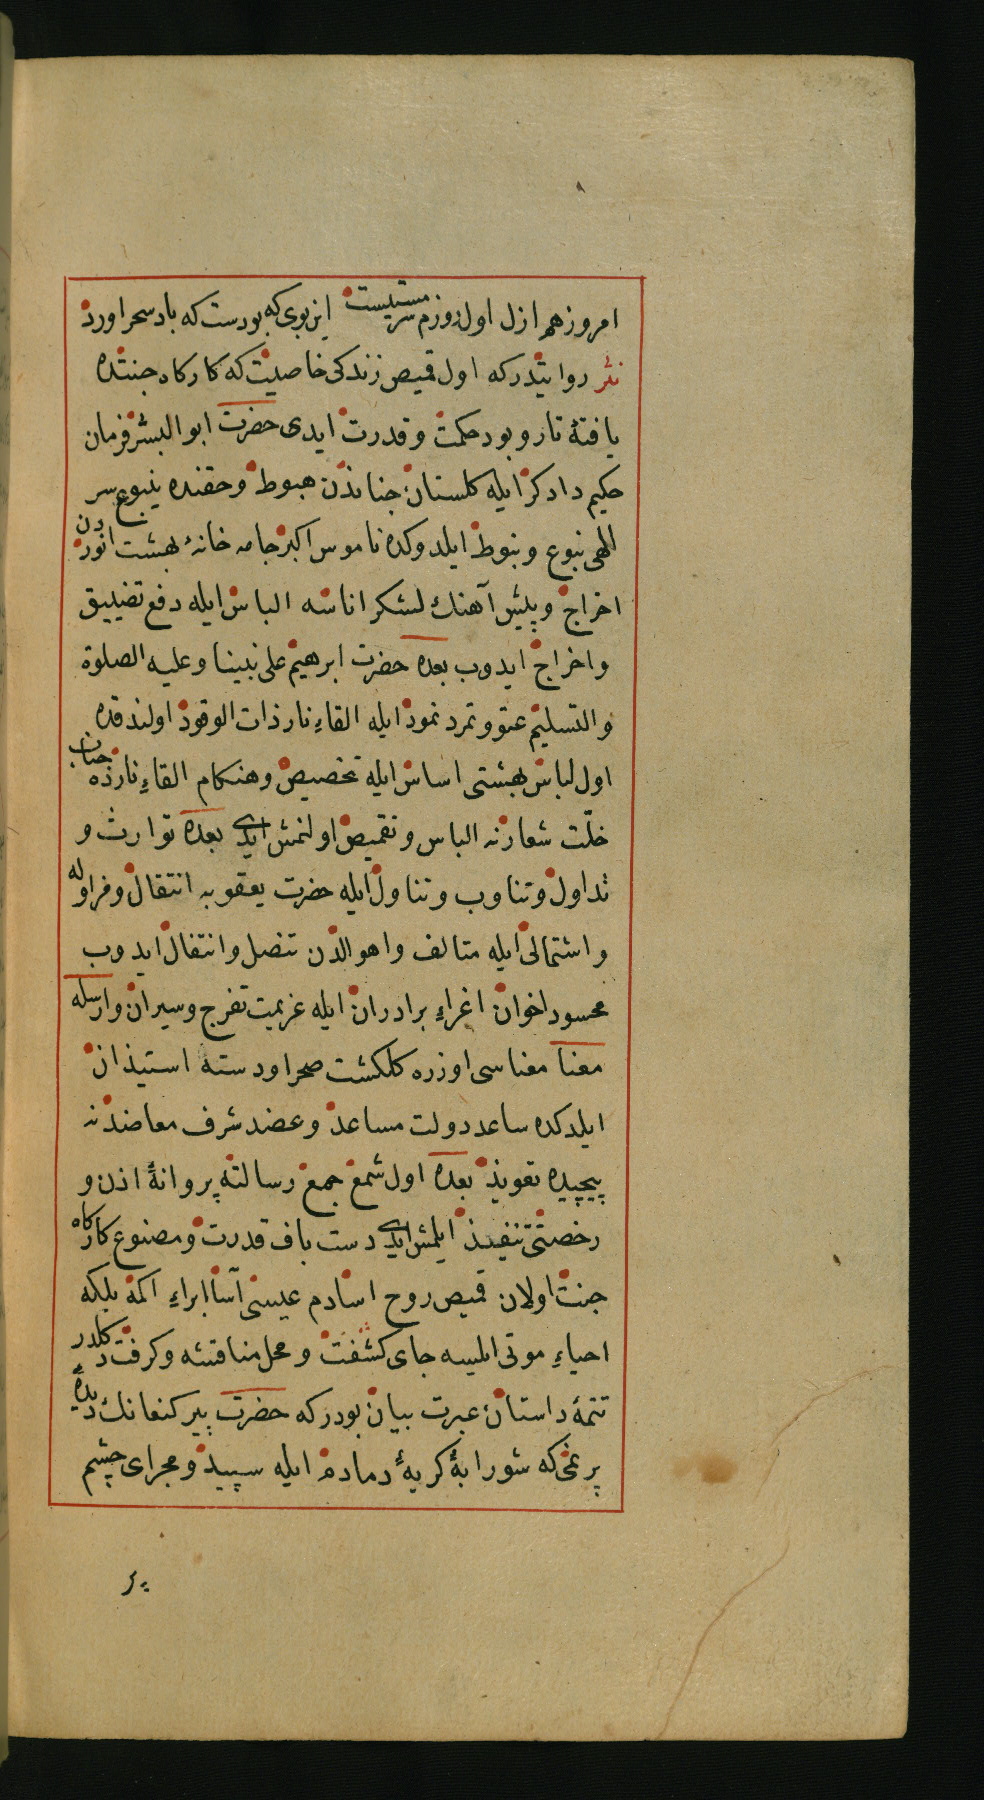 امروز هم از ل اول روزم سرمستیست این بوی که بودست که باد سحر اورد
نثر روایتدر که اول قمیص زندکی خاصیت که کارکاه جنتده
یافتهٔ تار و بود حکمت و قدرت ایدی حضرت ابو البشر فرمان
حکیم دادکر ایله کلستان جناندن هبوط و حقنده ینبوع سر
الهی نبوع و نبوط ایلدوکده ناموس اکبر جامه خانهٔ بهشت انوردن
اخراج و پیش آهنك لشکر اناسه الباس ایله دفع تضییق
و اخراج ایدوب بعده حضرت ابرهیم علی نبینا و علیه الصلوة
و التسلیم عتو و تمرد نمرود ایله القاء نار ذات الوقود اولندقده
اول لباس بهشتی اساس ایله تخصیص و هنکام القاء نارده جناب
خلّت شعارنه الباس و تقمیص اولنمش ایدی بعده توارث و
تداول و تناوب و تناول ایله حضرت یعقوبه انتقال و فراوله
و اشتمالی ایله متالف و اهوالدن تنصل و انتفال ایدوب
محسود اخوان اغراء برادران ایله عزیمت تفرج و سیران و ارسله
معنا معناسی اوزره کلکشت صحرا و دسته استیذان
ایلدکده ساعد دولت مساعد و عضد شرف معاضدنه
پیچیده تعویذ بعده اول شمع جمع رسالته پروانهٔ اذن و
رخصتی تنفیذ ایلمش ایدی دست باف قدرت و مصنوع کارکاه
جنت اولان قمیص روح اسادم عیسی آسا ابراء اکمه بلکه
احیاء موتی ایلیسه جای کشفت و محل مناقشه و کرفت دکلدر
تتمهٔ داستان عبرت بیان بودر که حضرت پیر کنعانك دیدهٔ
پر نمی که شورابهٔ کریهٔ دمادم ایله سپید و مجرای چشم